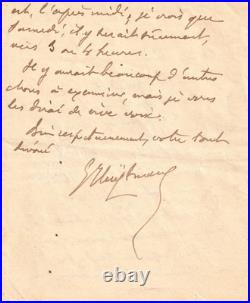 est, l'après midi, je crois que
Samedi, il y serait sûrement,
vers 3 ou 4 heures.
Il y aurait beaucoup d'autres
choses à examiner, mais je vous
les dirai de vive voix.
Bien respectueusement, votre tout
dévoué